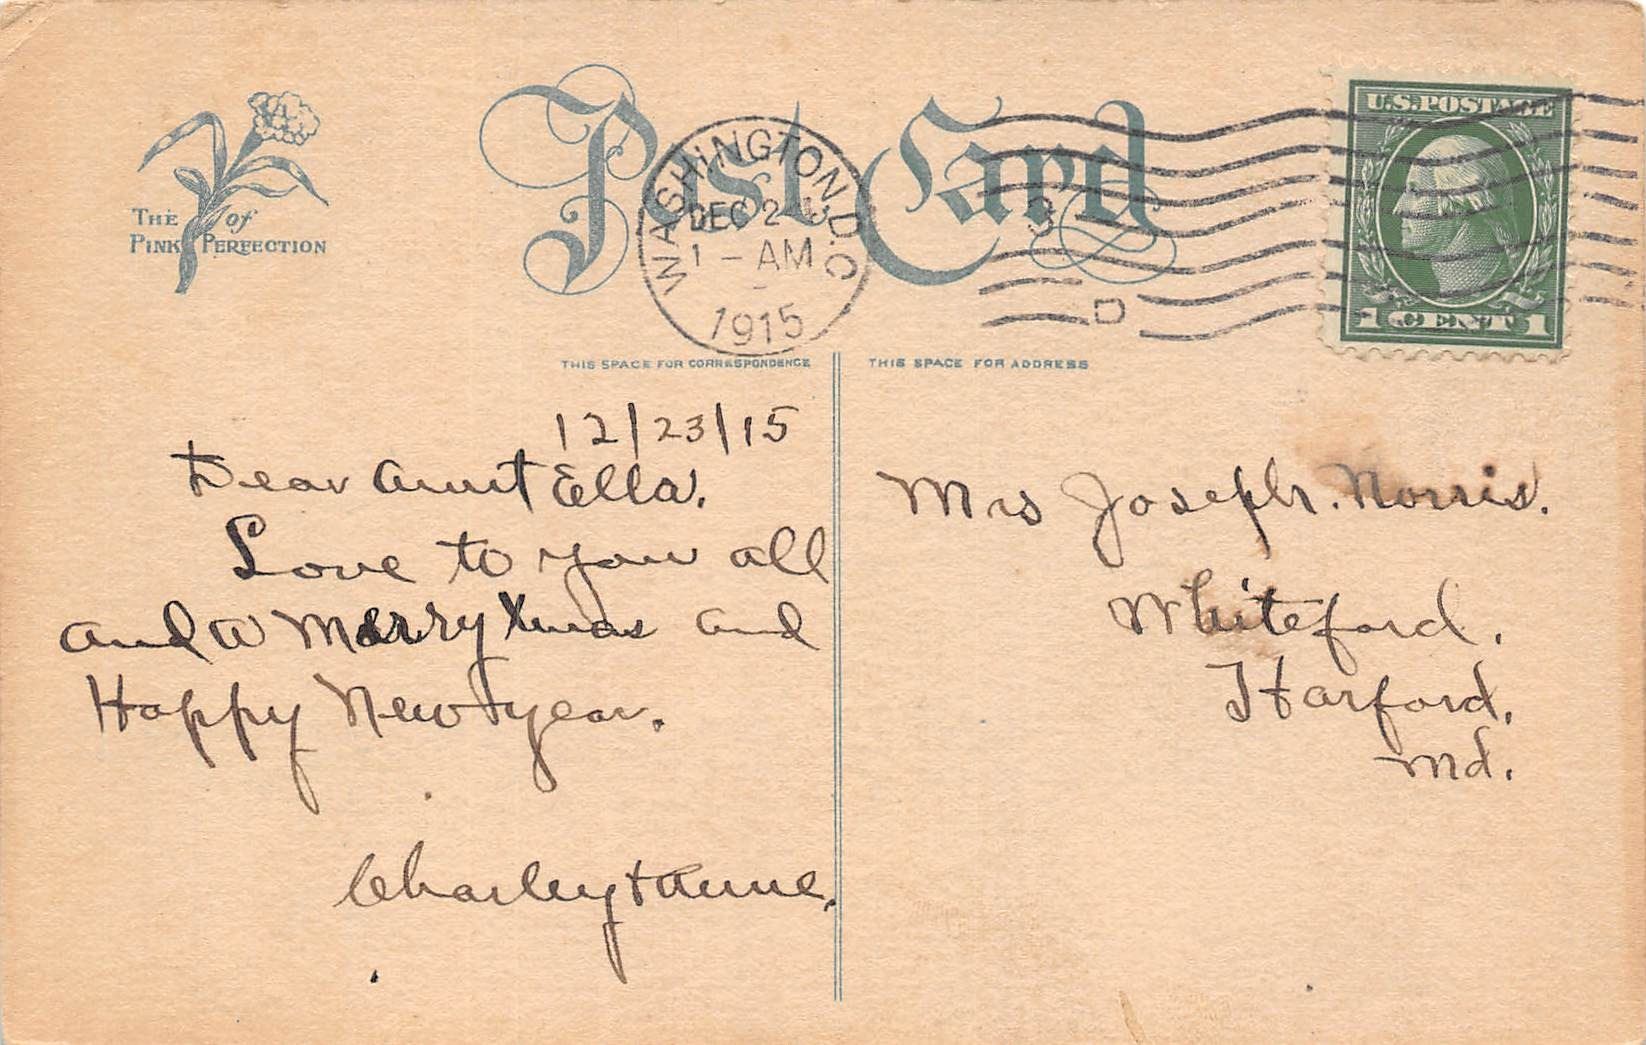 THE of
PINK PERFECTION
Post Card
WASHINGTON, D.C.
DEC 2
1 - AM
1915
3
D
U.S. POSTAGE
1 CENT 1
THIS SPACE FOR CORRESPONDENCE
THIS SPACE FOR ADDRESS
12/23/15
Dear Aunt Ella.
Love to you all
and a Merry Xmas and
Happy New year.
Charley + Anne.
Mrs Joseph. Norris.
Whiteford.
Harford.
Md.